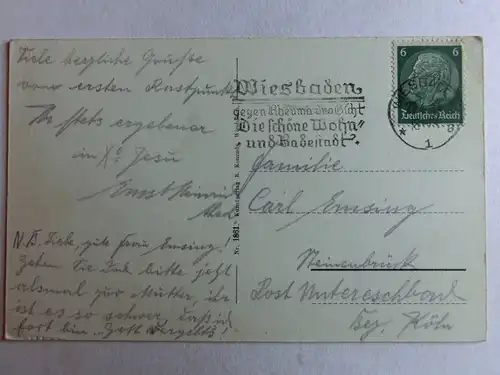 Viele herzliche Grüsse
vom ersten Rastpunkt
Ihr stets ergebener
in X° Jesu
Ernst Heinrich
N.B. Liebe, gute Frau Emsing!
Gehen Sie doch bitte jetzt
als mal zur Mutter, ihr
ist es so schwer, daß ich
fort bin. „Gott vergelts!
Nr. 1861
Wiesbaden
gegen Rheuma und Gicht
Die schöne Wohn-
und Badestadt
6 6
Deutsches Reich
WIESBADEN
1
Familie
Carl Emsing
Steinenbrück
Post Untereschbach
Bez. Köln